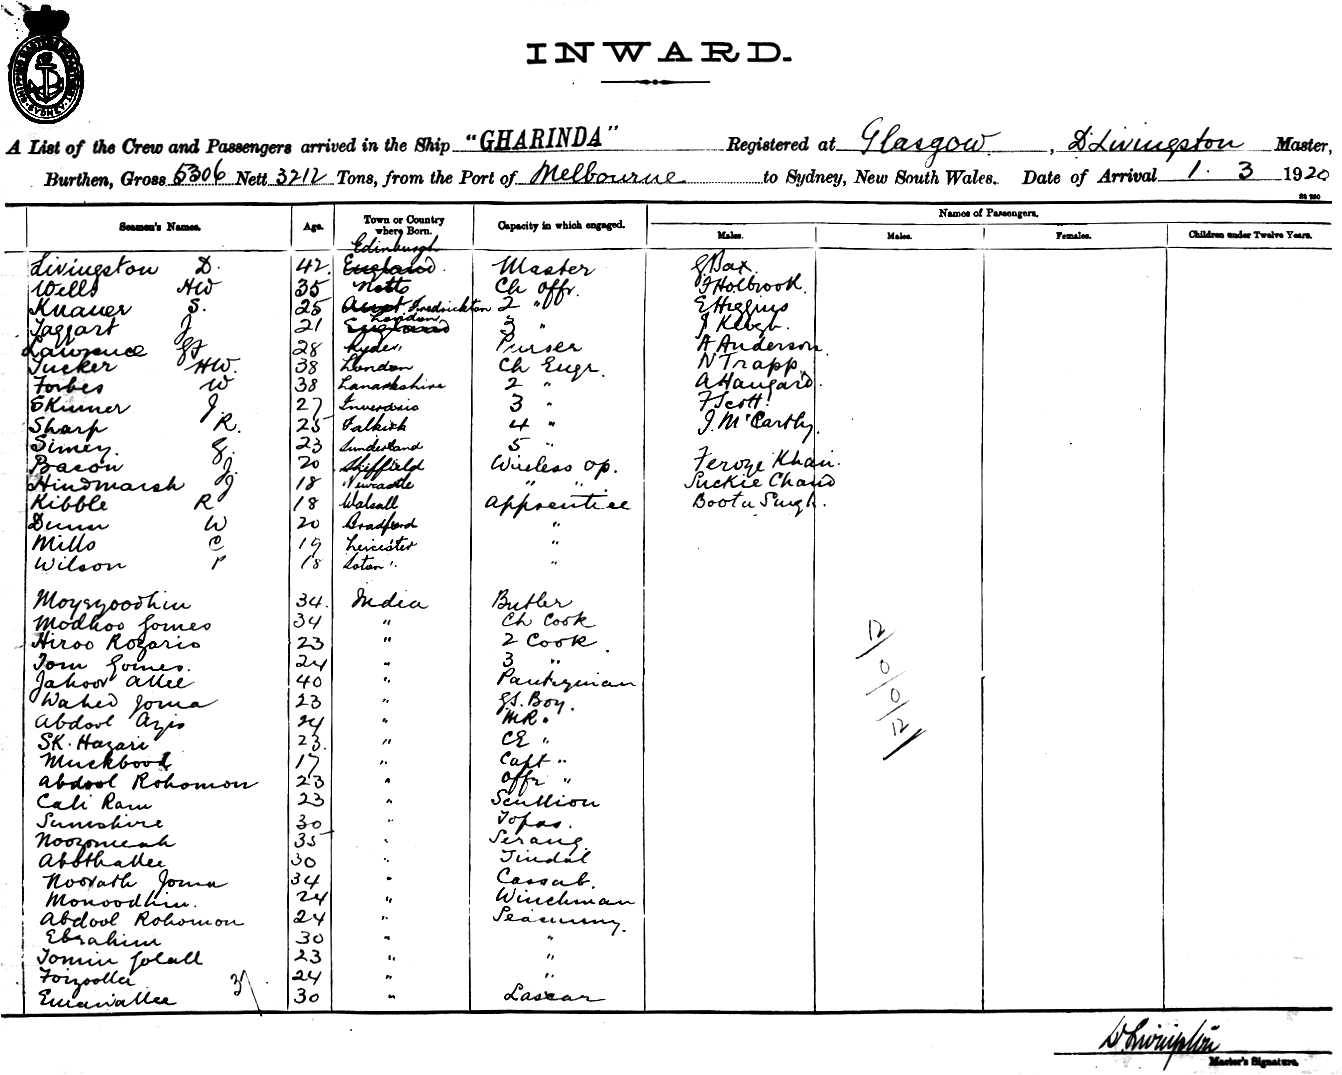 INWARD.
A List of the Crew and Passengers arrived in the Ship "GHARINDA" Registered at Glasgow, D Livingston Master,
Burthen, Gross 5306 Nett 3212 Tons, from the Port of Melbourne to Sydney, New South Wales. Date of Arrival 1. 3 1920
Names of Passengers.
Seamen's Names. Age. Town or Country where Born. Capacity in which engaged. Males. Males. Females. Children under Twelve Years.
Edinburgh
Livingston D. 42. England. Master G Bax
Wells HW 35 Notts Ch Offr. F Holbrook
Knauer S. 25 Fredrickton 2 " E Higgins
London
Taggart J 21 England 3 " J
Lawrence GF 28 Ryde. Purser A Anderson.
Tucker HW. 38 London Ch Engr. N Trapp.
Forbes W 38 Lanarkshire 2 " A Haugard.
Skinner J. 27 3 " F Scott.
Sharp R. 25 Falkirk 4 " J. McCarthy.
Simey. G. 23 Sunderland 5 "
Bacon J. 20 Sheffield Wireless Op. Feroze Khan.
Hindmarsh J 18 Newcastle " " Suckie Chand
Kibble R 18 Walsall Apprentice Boota Singh.
Dunn W 20 Bradford "
Mills C 19 Leicester "
Wilson P 18 "
Moyezoodhin 34. India Butler
Modhoo Gomes 34 " Ch Cook
Hiroo Rozario 23 " 2 Cook.
Tom Gomes. 24 " 3 "
Jahoor Allee 40 " Pantryman
Wahed Joma 23 " GS. Boy.
Abdool Azis 24 " MR. "
SK. Hazari 23. " CE "
Muckbool 17 " Capt "
Abdool Rohomon 23 " Offr "
Cali Ram 23 " Scullion
Sumshire 30 " Topas.
Noozomeah 35 " Serang
Abothallee 30 " Tindal
Noorath Joma 34 " Cassab.
Monoodhin. 24 " Winchman
Abdool Rohomon 24 " Seacunny.
Ebrahim 30 " "
Tomin Golall 23 " "
Foizoolla 24 " "
Emanallee 30 " Lascar
37
12
0
0
12
D. Livingston
Master's Signature.